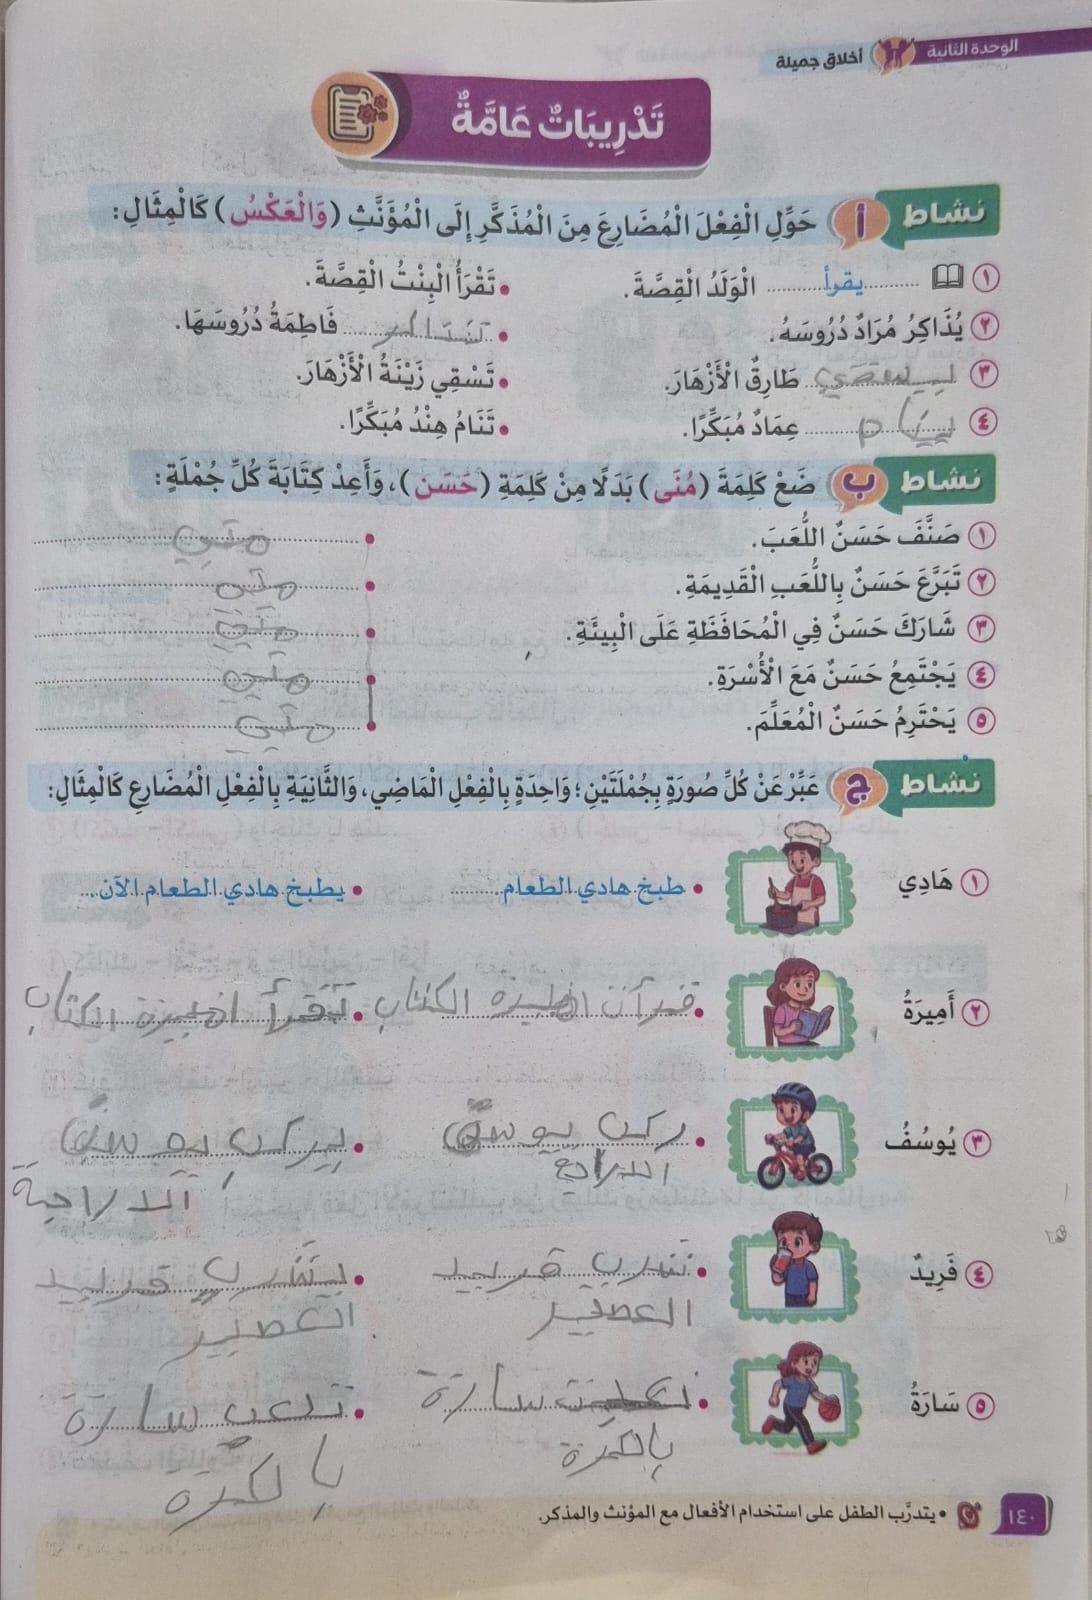 الوحدة الثانية أخلاق جميلة
تَدْرِيبَاتٌ عَامَّةٌ
نشاط أ حَوِّلِ الْفِعْلَ الْمُضَارِعَ مِنَ الْمُذَكَّرِ إِلَى الْمُؤَنَّثِ (وَالْعَكْسُ) كَالْمِثَالِ:
١ يقرأ الْوَلَدُ الْقِصَّةَ. • تَقْرَأُ الْبِنْتُ الْقِصَّةَ.
٢ يُذَاكِرُ مُرَادٌ دُرُوسَهُ. • فَاطِمَةُ دُرُوسَهَا.
٣ طَارِقٌ الْأَزْهَارَ. • تَسْقِي زَيْنَةُ الْأَزْهَارَ.
٤ ينام عِمَادٌ مُبَكِّرًا. • تَنَامُ هِنْدُ مُبَكِّرًا.
نشاط ب ضَعْ كَلِمَةَ (مُنَى) بَدَلًا مِنْ كَلِمَةِ (حَسَن)، وَأَعِدْ كِتَابَةَ كُلِّ جُمْلَةٍ:
١ صَنَّفَ حَسَنٌ اللُّعَبَ. •
٢ تَبَرَّعَ حَسَنٌ بِاللُّعَبِ الْقَدِيمَةِ. •
٣ شَارَكَ حَسَنٌ فِي الْمُحَافَظَةِ عَلَى الْبِيئَةِ. •
٤ يَجْتَمِعُ حَسَنٌ مَعَ الْأُسْرَةِ. •
٥ يَحْتَرِمُ حَسَنٌ الْمُعَلِّمَ. •
نشاط ج عَبِّرْ عَنْ كُلِّ صُورَةٍ بِجُمْلَتَيْنِ؛ وَاحِدَةٍ بِالْفِعْلِ الْمَاضِي، وَالثَّانِيَةِ بِالْفِعْلِ الْمُضَارِعِ كَالْمِثَالِ:
١ هَادِي • طبخ هادي الطعام • يطبخ هادي الطعام الآن
٢ أَمِيرَةُ • الكتاب • تقرأ الكتاب
٣ يُوسُفُ • •
٤ فَرِيدٌ • شرب فريد • يشرب فريد
العصير العصير
٥ سَارَةُ • سارة • تلعب سارة
بالكرة بالكرة
• يتدرَّب الطفل على استخدام الأفعال مع المؤنث والمذكر.
١٤٠